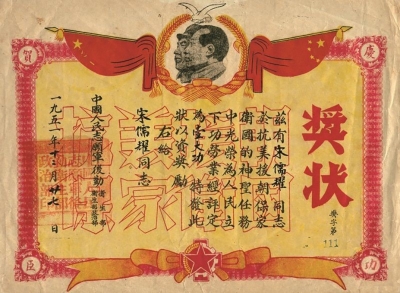 慶賀
獎状
獎字第 111
茲有宋儒耀同志
在抗美援朝保家
衛國的神聖任務
中光榮為人民立
下功勞業經評定
為壹大功 特發此
狀以資獎勵
右給
宋儒耀同志
中國人民志願軍後勤
衛生部
功臣